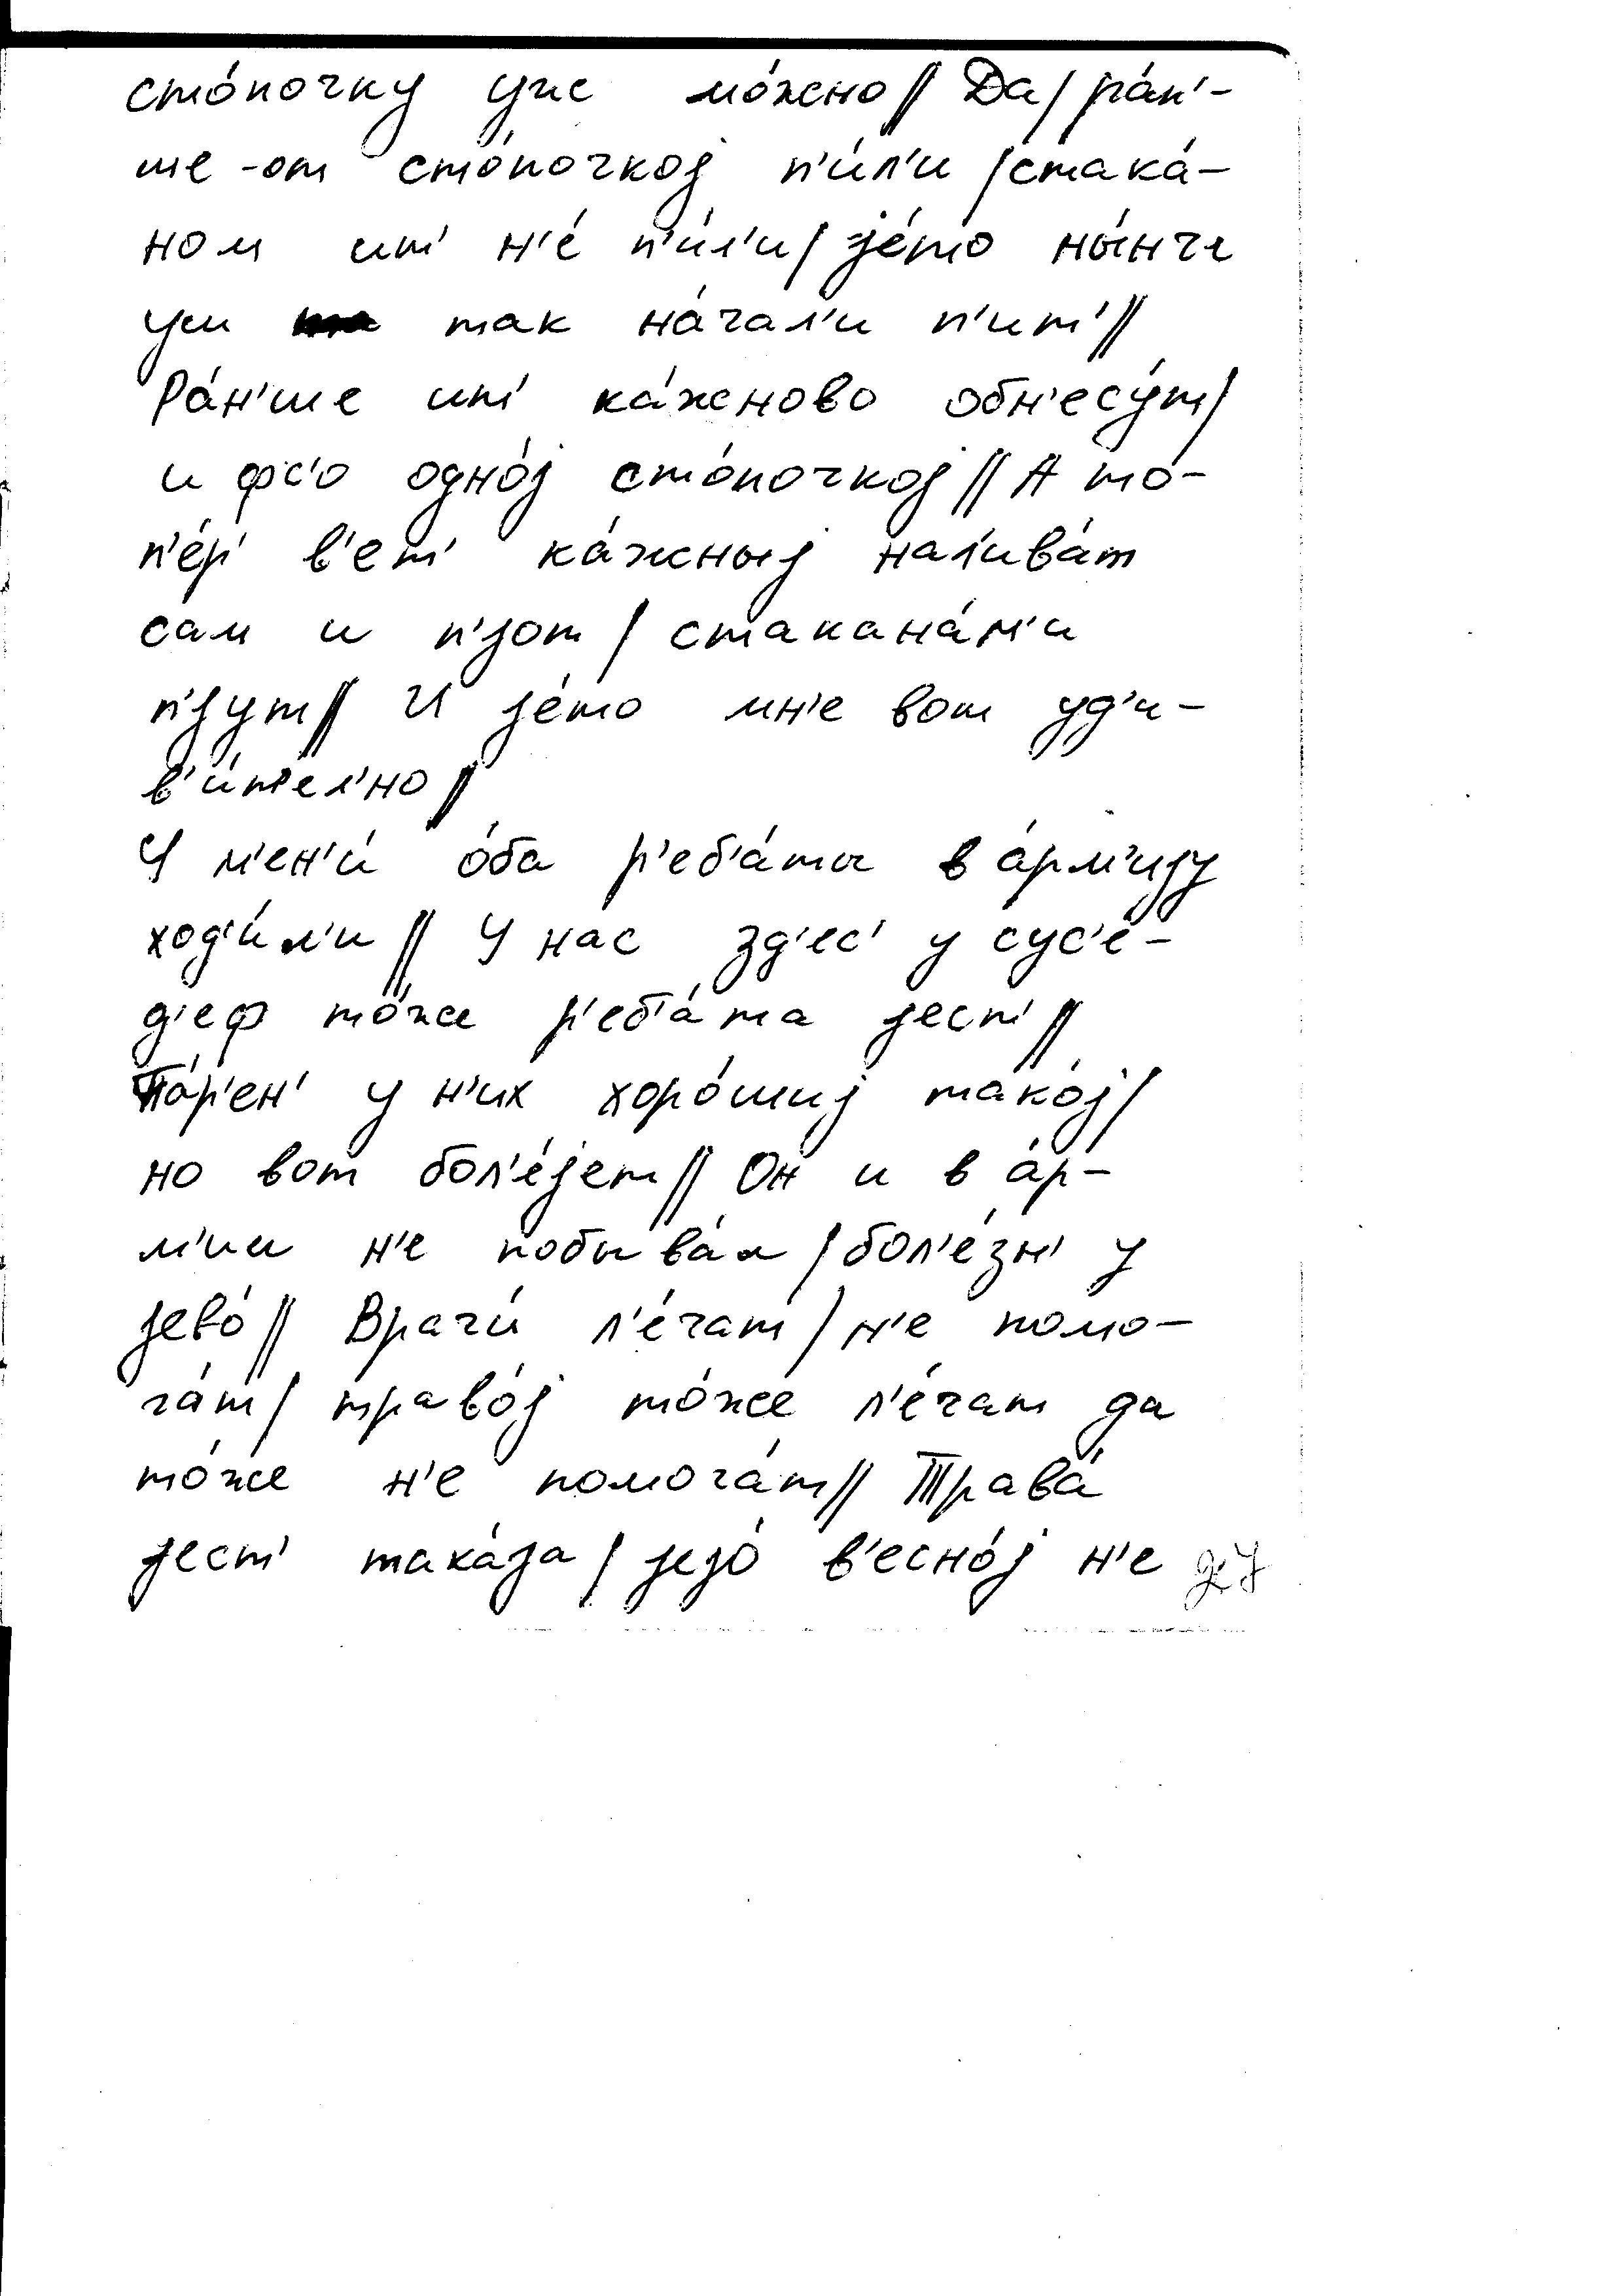 сто́почку уже мо́жно // Да / ра́н'-
ше-от сто́почкој п'и́л'и / стака́-
ном ит' н'е́ п'и́л'и / је́то ны́нче
уш так на́чал'и п'ит' //
Ра́н'ше ит' ка́жново обн'есу́т /
и фс'о одно́ј сто́почкој // А то-
п'е́р' в'ет' ка́жныј нал'ива́т
сам и п'јот / стакана́м'и
п'јут // И је́то мн'е вот уд'и-
в'и́т'ел'но //
У м'ен'и́ о́ба р'еб'а́та в а́рм'ију
ход'и́л'и // У нас зд'ес' у сус'е́-
д'еф то́же р'еб'а́та јест' //
Па́р'ен' у н'их хоро́шиј тако́ј /
но вот бол'е́јет // Он и в а́р-
м'ии н'е побыва́л / бол'е́зн' у
јево́ // Врачи́ л'е́чат / н'е помо-
га́т / траво́ј то́же л'е́чат да
то́же н'е помога́т // Трава́
јест' така́ја / јејо́ в'есно́ј н'е